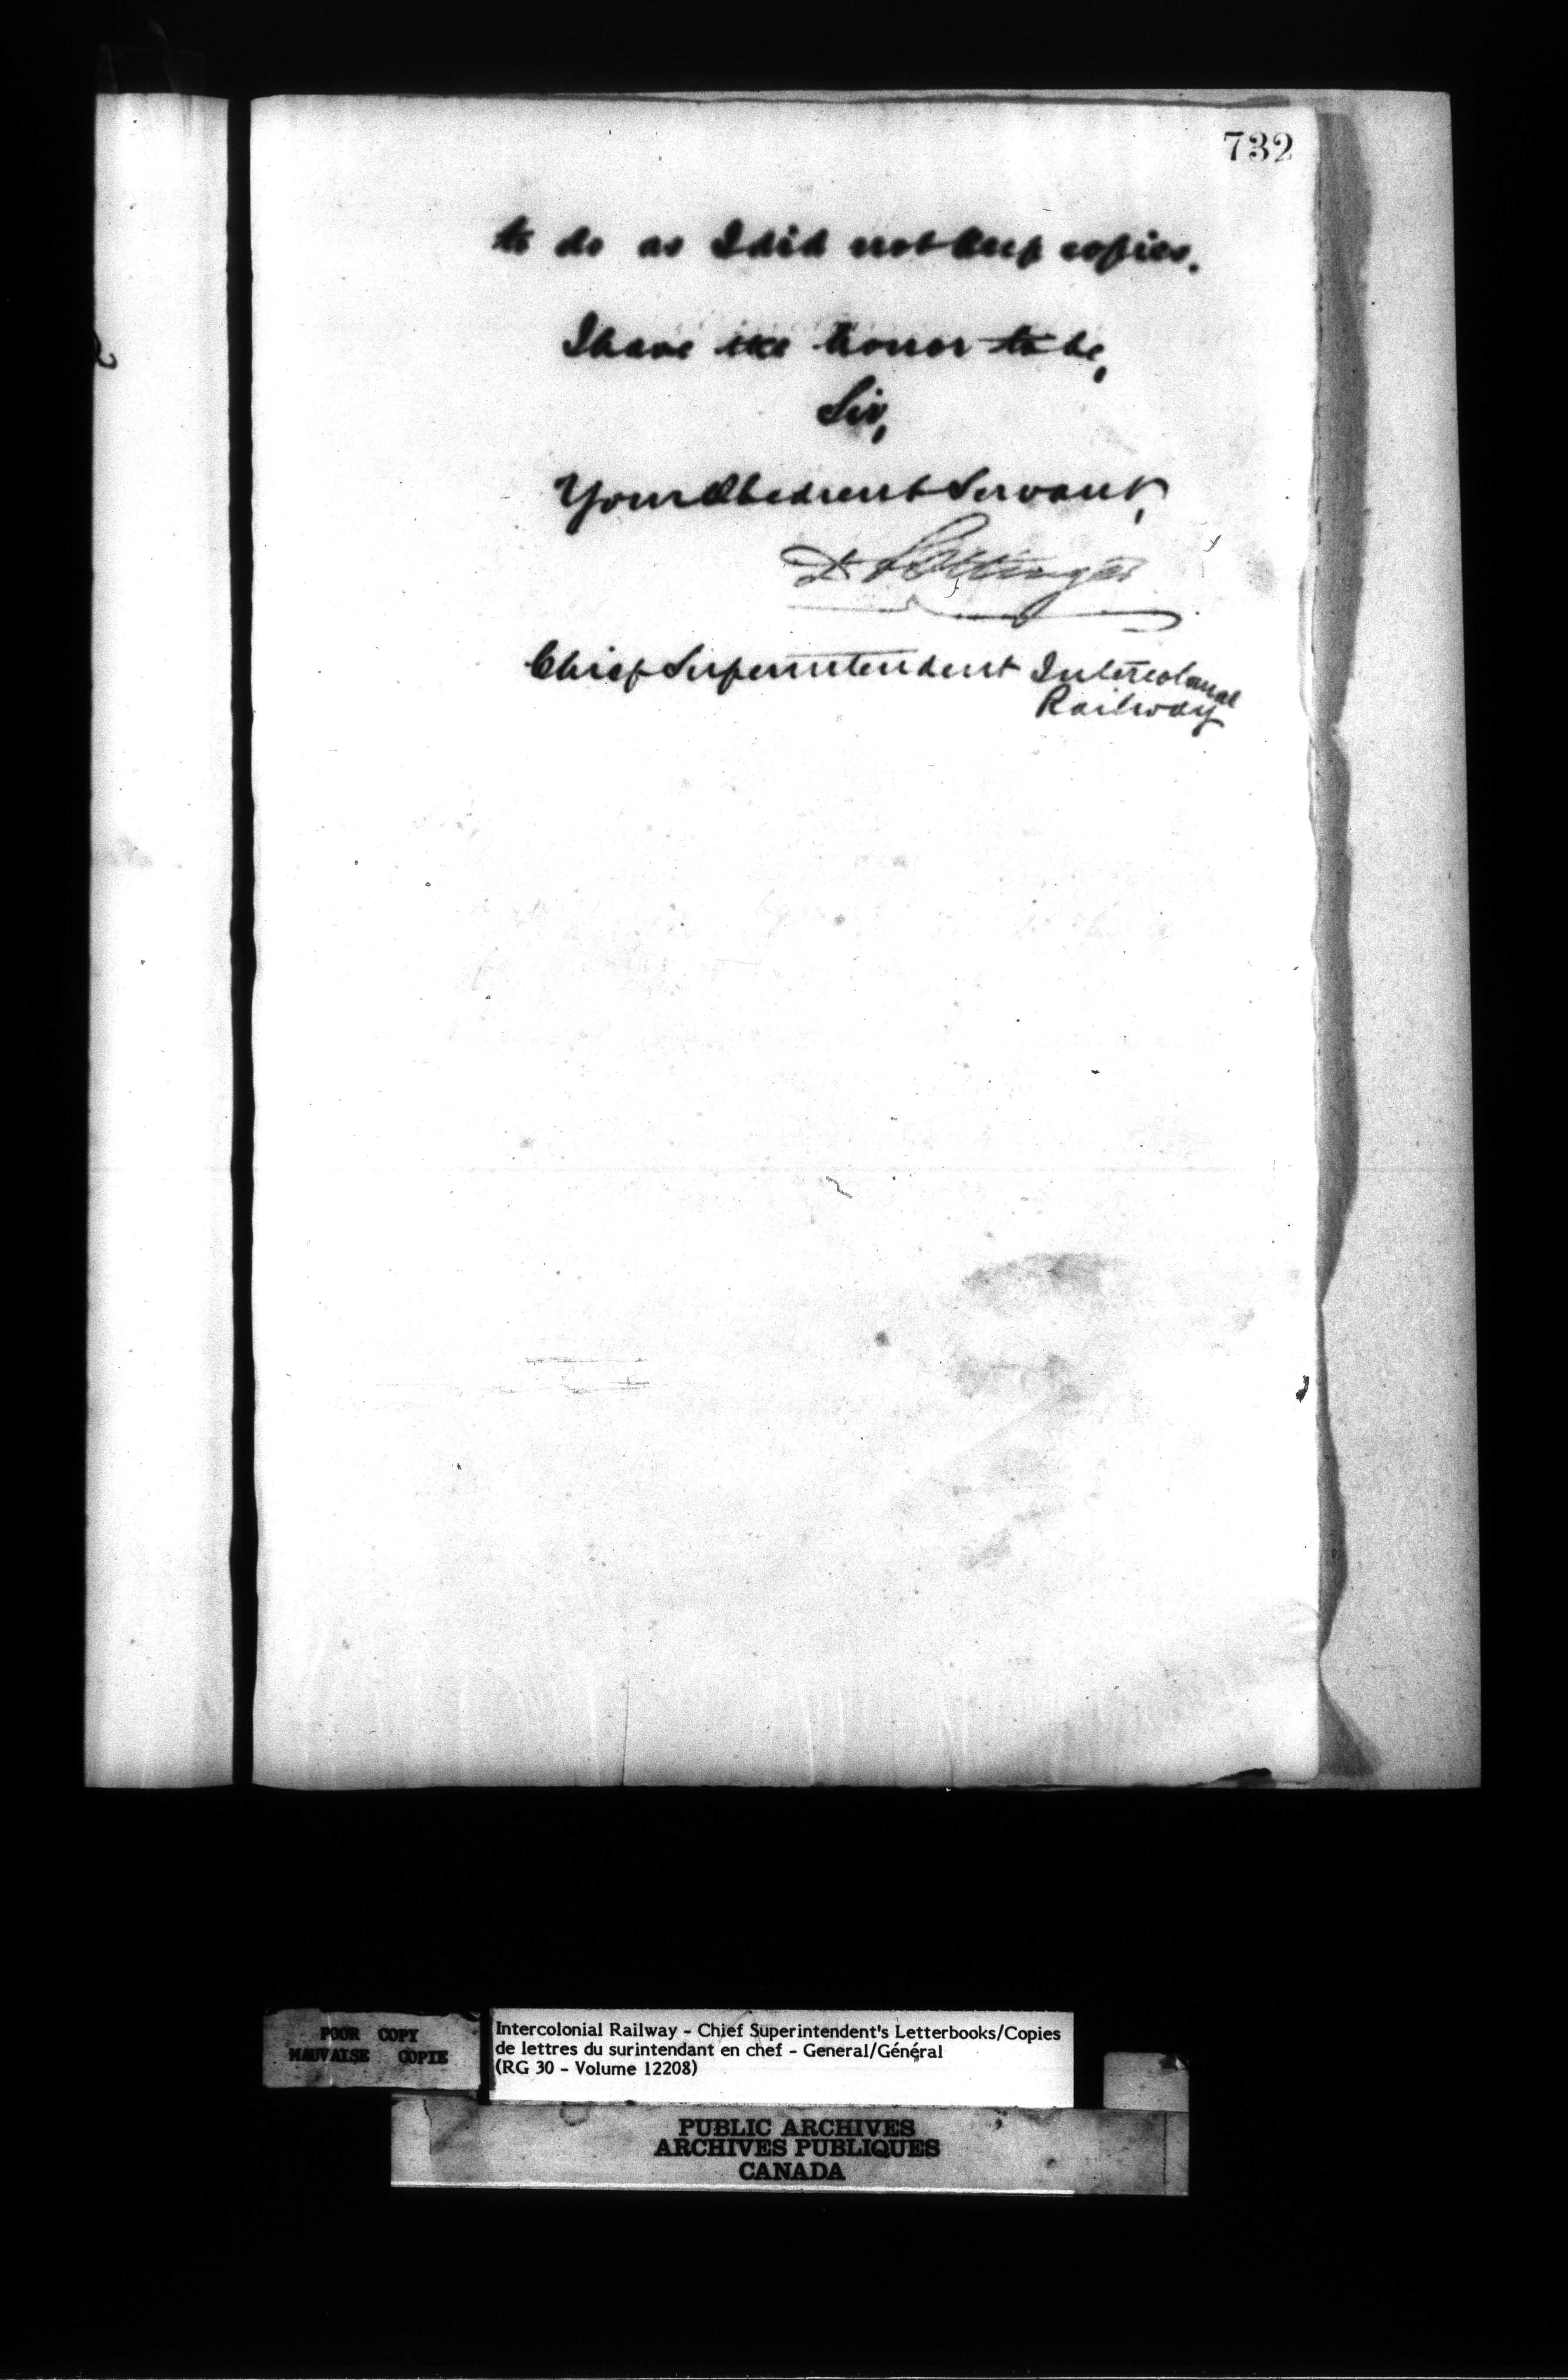 732
to do as I did not keep copies.
I have the honor to be,
Sir,
Your Obedient Servant,
D Pottinger
Chief Superintendent Intercolonial
Railway
POOR COPY
MAUVAISE COPIE
Intercolonial Railway - Chief Superintendent's Letterbooks/Copies
de lettres du surintendant en chef - General/Général
(RG 30 - Volume 12208)
PUBLIC ARCHIVES
ARCHIVES PUBLIQUES
CANADA